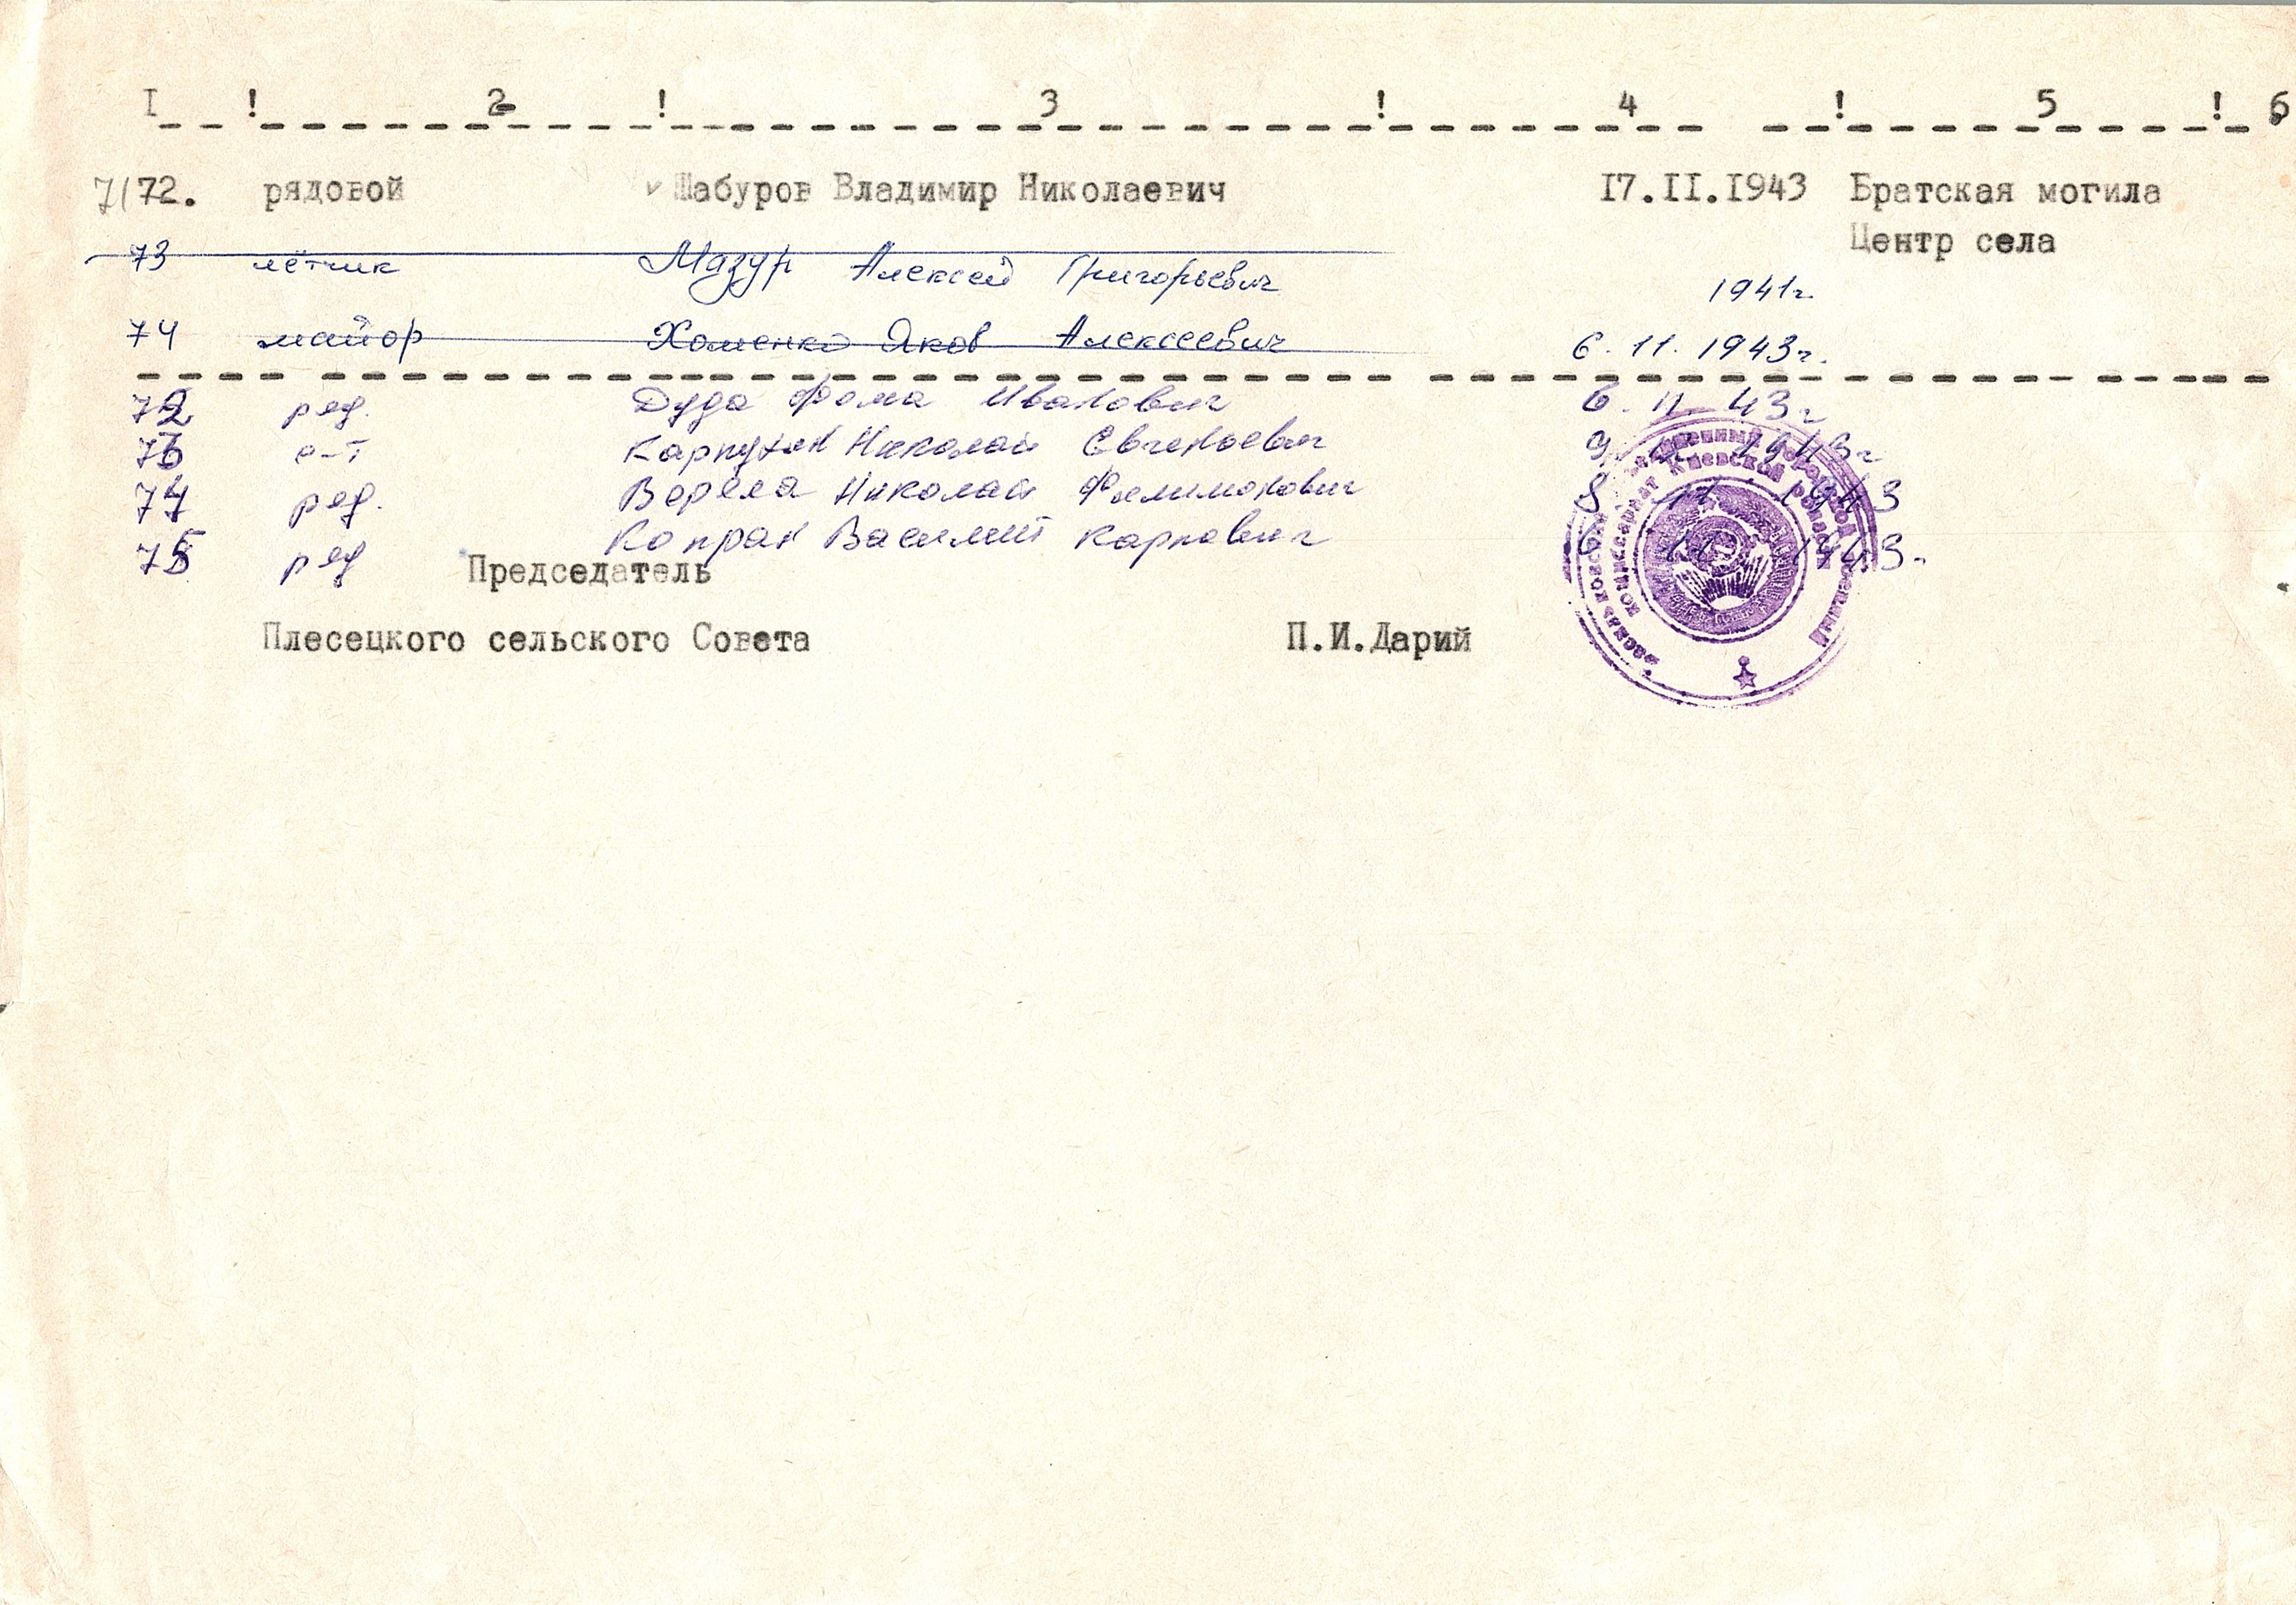 I ! 2 ! 3 ! 4 ! 5 ! 6
71 72. рядовой Шабуров Владимир Николаевич I7.II.I943 Братская могила
Центр села
73 лётчик Мазур Алексей Григорьевич 1941г.
74 майор Хоменко Яков Алексеевич 6.11.1943г.
72 ряд. Дуда Фома Иванович 6.11 43г
73 с-т Карпухин Николай Евгеньевич 9. 11 1943г
74 ряд. Верела Николай Филимонович 8 11 1943
75 ряд Копран Василий Карпович 6 11 1943.
Председатель
Плесецкого сельского Совета П.И.Дарий